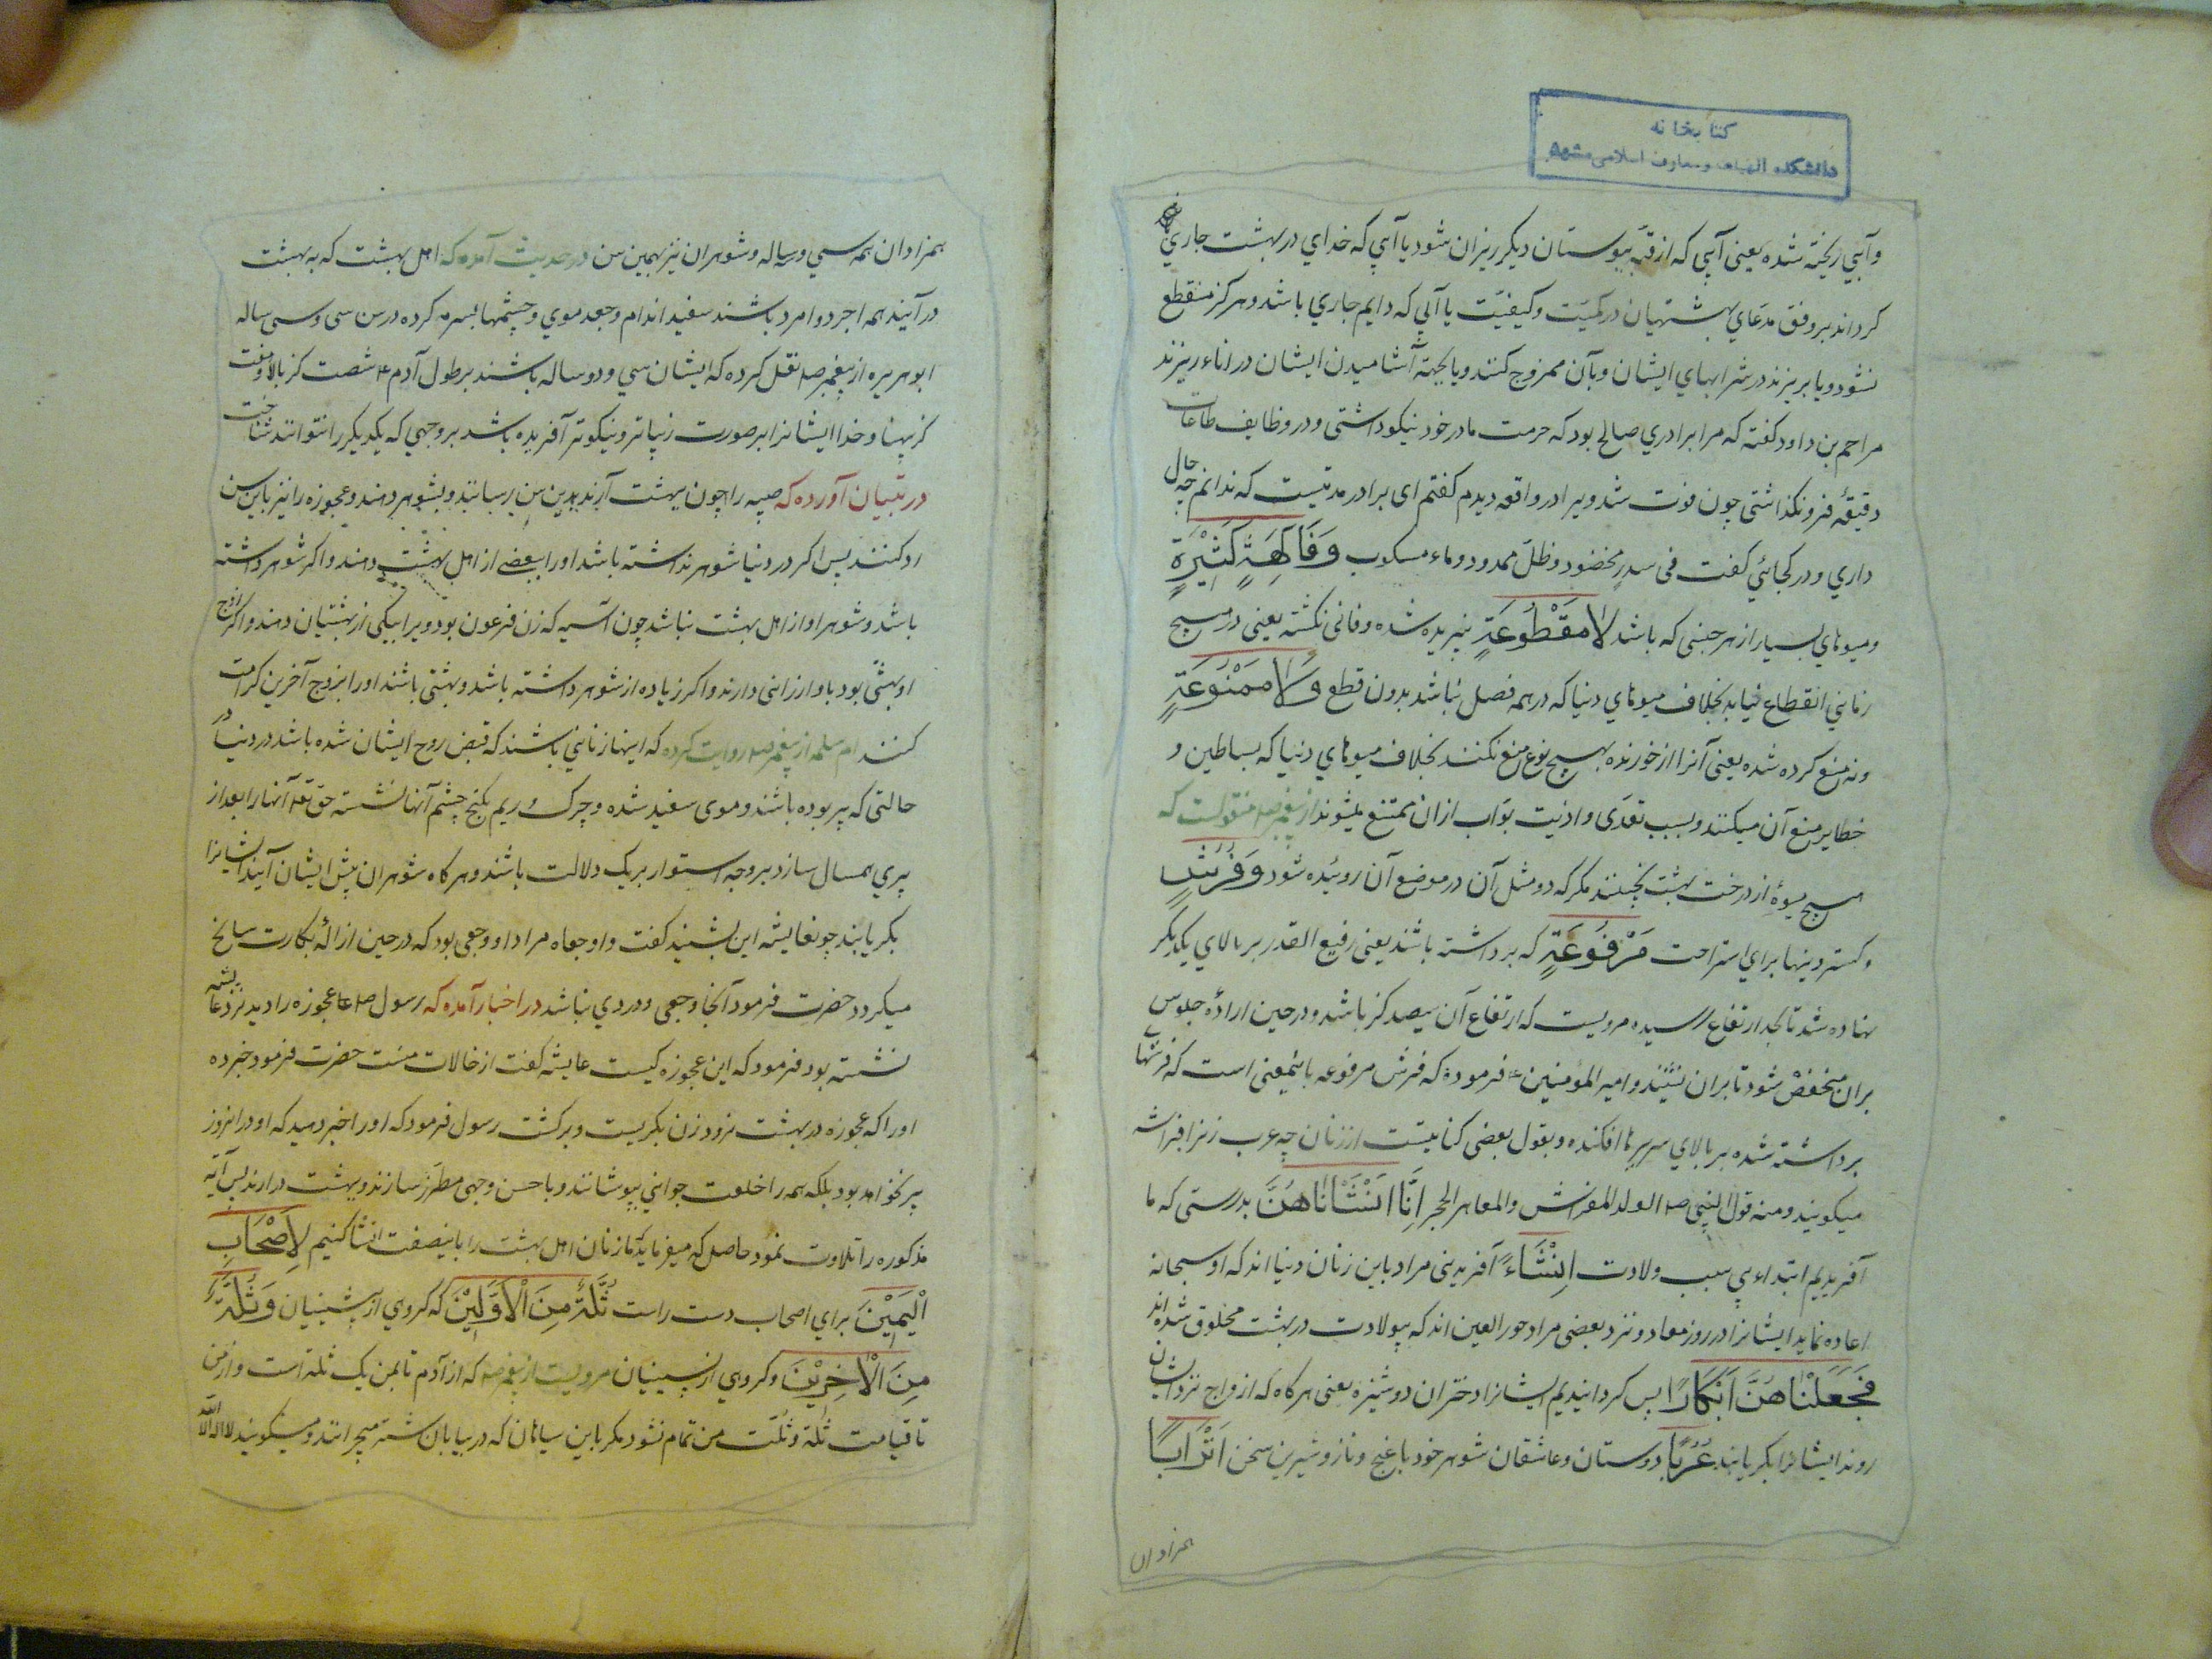 کتابخانه
دانشکده الهیات و معارف اسلامی مشهد
و آبی ریخته شده یعنی آبی که از قبه ببوستان دیکر ریزان شود یا آبی که خدای در بهشت جاری
کرداند بر وفق مدعای بهشتیان در کمیت و کیفیت یا آبی که دایم جاری باشد و هرکز منقطع
نشود و یا بریزند در شرابهای ایشان و بآن ممزوج کنند و یا بجهته آشامیدن ایشان در اناء ریزند
مراحم بن داود کفته که مرا برادری صالح بود که حرمت مادر خود نیکو داشتی و در وظایف طاعات
دقیقهٔ فرو نکذاشتی چون فوت شد ویرا در واقعه دیدم کفتم ای برادر مدتیست که ندانم چه حال
داری و در کجائی کفت فی سدر مخضود و ظل ممدود و ماء مسکوب وَفَاكِهَةٍ كَثِيْرَةٍ
و میوهای بسیار از هر جنس که باشد لَا مَقْطُوعَةٍ نه بریده شده و فانی نکشته یعنی در هیچ
زمانی انقطاع نیابد بخلاف میوهای دنیا که در همه فصل نباشد بدون قطع وَلَا مَمْنُوعَةٍ
و نه منع کرده شده یعنی آنرا از خورنده بهیچ نوع منع نکنند بخلاف میوهای دنیا که بساطین و
خطایر منع آن میکنند و بسبب تعدی و اذیت بواب از ان ممتنع میشوند از پیغمبر صم منقولست که
هیچ میوهٔ از درخت بهشت نچینند مکر که دو مثل آن در موضع آن روئیده شود وَفُرُشٍ
و کستردنیها برای استراحت مَرْفُوعَةٍ که برداشته باشند یعنی رفیع القدر بر بالای یکدیکر
نهاده شد تا بحد ارتفاع رسیده مرویست که ارتفاع آن سیصد کز باشد و در حین ارادهٔ جلوس
بران منخفض شود تا بران نشینند و امیر المؤمنین ع فرموده که فرش مرفوعه باینمعنی است که فرشها
برداشته شده بر بالای سریرها افکنده و بقول بعضی کنایتست از زنان چه عرب زنرا فراش
میکویند و منه قول النبی صم الولد للفراش و للعاهر الحجر اِنَّا اَنْشَأْنَاهُنَّ بدرستی که ما
آفریدیم ابتداء بی سبب ولادت اِنْشَاءً آفریدنی مراد باین زنان دنیا اند که او سبحانه
اعاده نماید ایشانرا در روز معاد و نزد بعضی مراد حور العین اند که بیولادت در بهشت مخلوق شده اند
فَجَعَلْنَاهُنَّ اَبْكَارًا پس کردانیدیم ایشانرا دختران دوشیزه یعنی هرکاه که ازواج نزد ایشان
روند ایشانرا بکر یابند عُرُبًا دوستان و عاشقان شوهر خود با غنج و ناز و شیرین سخن اَتْرَابًا
همزادان
همزادان همه سی و سه ساله و شوهران نیز بهمین سن در حدیث آمده که اهل بهشت که به بهشت
درآیند همه اجرد و امرد باشند سفید اندام و جعد موی و چشمها بسرمه کرده در سن سی و سی ساله
ابو هریره از پیغمبر صم نقل کرده که ایشان سی و دو ساله باشند بر طول آدم ع شصت کز بالا و هفت
کز پهنا و خدا ایشانرا بر صورت زیباتر و نیکوتر آفریده باشد بر وجهی که یکدیکر را نتوانند شناخت
در تبیان آورده که صبیه را چون ببهشت آرند بدین سن برسانند و بشوهر دهند و عجوزه را نیز باین سن
رد کنند پس اکر در دنیا شوهر نداشته باشد او را ببعضی از اهل بهشت دهند و اکر شوهر داشته
باشد و شوهر او از اهل بهشت نباشد چون آسیه که زن فرعون بود ویرا بیکی از بهشتیان دهند و اکر زوج
او بهشتی بود باو ارزانی دارند و اکر زیاده از شوهر داشته باشد و بهشتی باشند او را بزوج آخرین کرامت
کنند ام سلمه از پیغمبر صم روایت کرده که اینها زنانی باشند که قبض روح ایشان شده باشد در دنیا در
حالتی که پیر بوده باشند و موی سفید شده و چرک و ریم بکنج چشم آنها نشسته حق تعم آنها را بعد از
پیری همسال سازد بر وجه استوار بر یک ولادت باشند و هرکاه شوهران پیش ایشان آیند ایشانرا
بکر یابند چو نعایشه این بشنید کفت وا وجعاه مراد او وجعی بود که در حین ازالهٔ بکارت سانح
میکردد حضرت فرمود آنجا وجعی و دردی نباشد در اخبار آمده که رسول صم عجوزه را دید نزد عایشه
نشسته بود فرمود که این عجوزه کیست عایشه کفت از خالات منست حضرت فرمود خبر ده
او را که عجوزه در بهشت نرود زن بکریست و برکشت رسول فرمود که او را خبر دهید که او در انروز
پیر نخواهد بود بلکه همه را خلعت جوانی بپوشانند و باحسن وجهی مطرز سازند و ببهشت درارند پس آیه
مذکوره را تلاوت نمود حاصل که میفرماید که ما زنان اهل بهشت را باینصفت انشا کنیم لِاَصْحَابِ
الْيَمِيْنِ برای اصحاب دست راست ثُلَّةٌ مِنَ الْاَوَّلِيْنَ که کروهی از پیشینیان وَثُلَّةٌ
مِنَ الْاٰخِرِيْنَ و کروهی از پسینیان مرویست از پیغمبر صم که از آدم تا بمن یک ثلة است و از من
تا قیامت ثلة و ثلت من تمام نشود مکر باین سیاهان که در بیابان شتر میچرانند و میکویند لا اله الا الله